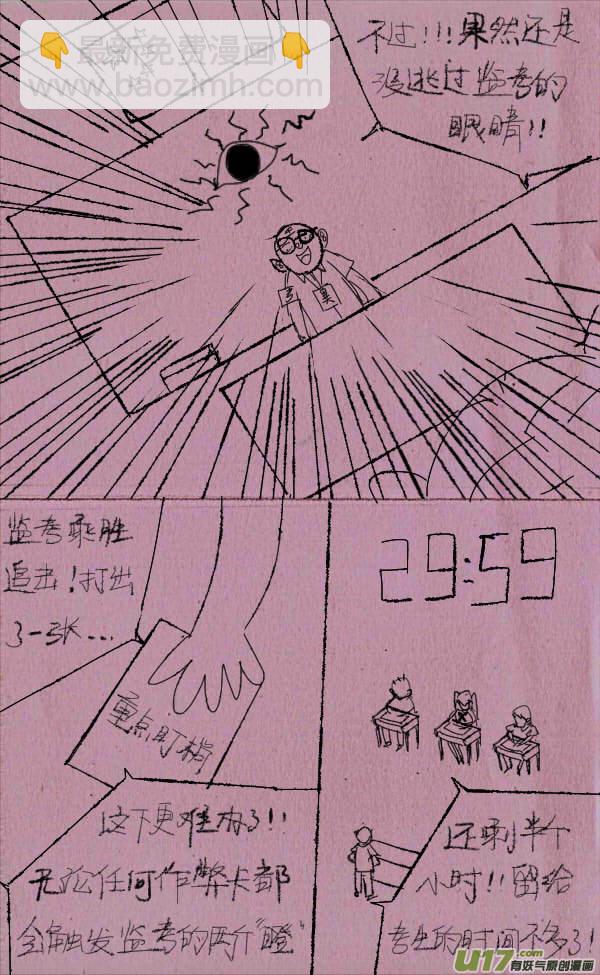 最新免费漫画
www.baozimh.com
不过!!!果然还是
没逃过监考的
眼睛!!
吴
监考乘胜
追击!打出
了一张...
重点盯梢
29:59
这下更难办了!!
无论任何作弊卡都
会触发监考的两个“瞪”
还剩半个
小时!!留给
考生的时间不多了!
U17.com
有妖气原创漫画